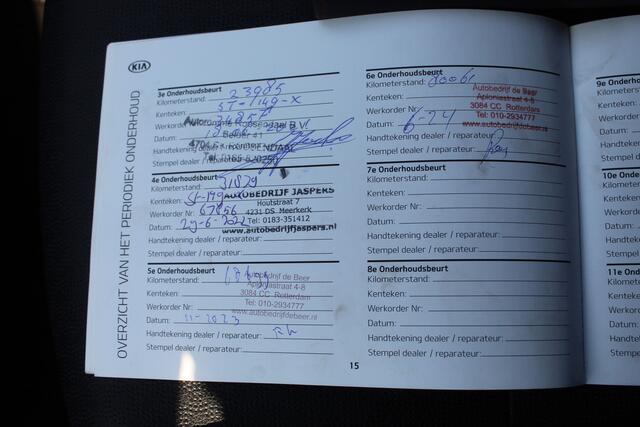 KIA
OVERZICHT VAN HET PERIODIEK ONDERHOUD
3e Onderhoudsbeurt
Kilometerstand: 23985
Kenteken: ST-149-X
Werkorder
Datum:
Handtekening dealer / reparateur:
Stempel dealer / reparateur:
4e Onderhoudsbeurt
Kilometerstand: 31829
Kenteken: ST-149-X
AUTOBEDRIJF JASPERS
Houtstraat 7
Werkorder Nr: 67856
4231 DS Meerkerk
Datum: 29-6-2022
Tel: 0183-351412
www.autobedrijfjaspers.nl
Handtekening dealer / reparateur:
Stempel dealer / reparateur:
5e Onderhoudsbeurt
Kilometerstand:
Autobedrijf de Beer
Kenteken:
Aploniastraat 4-8
3084 CC Rotterdam
Werkorder Nr:
Tel: 010-2934777
www.autobedrijfdebeer.nl
Datum: 11-2023
Handtekening dealer / reparateur:
Stempel dealer / reparateur:
6e Onderhoudsbeurt
Kilometerstand:
Autobedrijf de Beer
Kenteken:
Aploniastraat 4-8
3084 CC Rotterdam
Werkorder Nr:
Tel: 010-2934777
www.autobedrijfdebeer.nl
Datum: 6-24
Handtekening dealer / reparateur:
Stempel dealer / reparateur:
7e Onderhoudsbeurt
Kilometerstand:
Kenteken:
Werkorder Nr:
Datum:
Handtekening dealer / reparateur:
Stempel dealer / reparateur:
8e Onderhoudsbeurt
Kilometerstand:
Kenteken:
Werkorder Nr:
Datum:
Handtekening dealer / reparateur:
Stempel dealer / reparateur:
15
9e Onderh
Kilometers
Kenteken:
Werkorder
Datum:
Handteken
Stempel de
10e Onder
Kilometers
Kenteken:
Werkorder
Datum:
Handteken
Stempel d
11e Onde
Kilometer
Kenteken
Werkord
Datum:
Handtek
Stempel